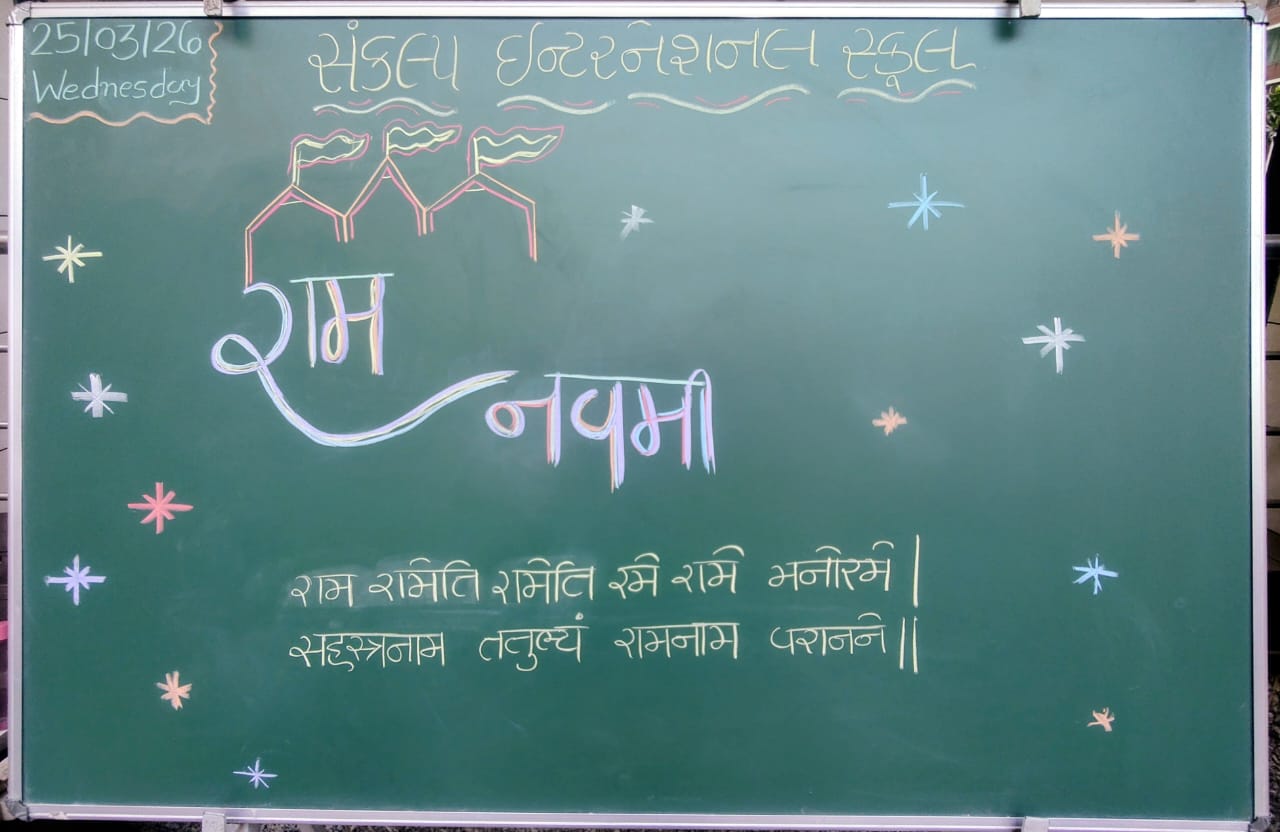 25/03/26
Wednesday
સંકલ્પ ઇન્ટરનેશનલ સ્કૂલ
राम
नवमी
राम रामेति रामेति रमे रामे मनोरमे |
सहस्त्रनाम ततुल्यं रामनाम वरानने ||